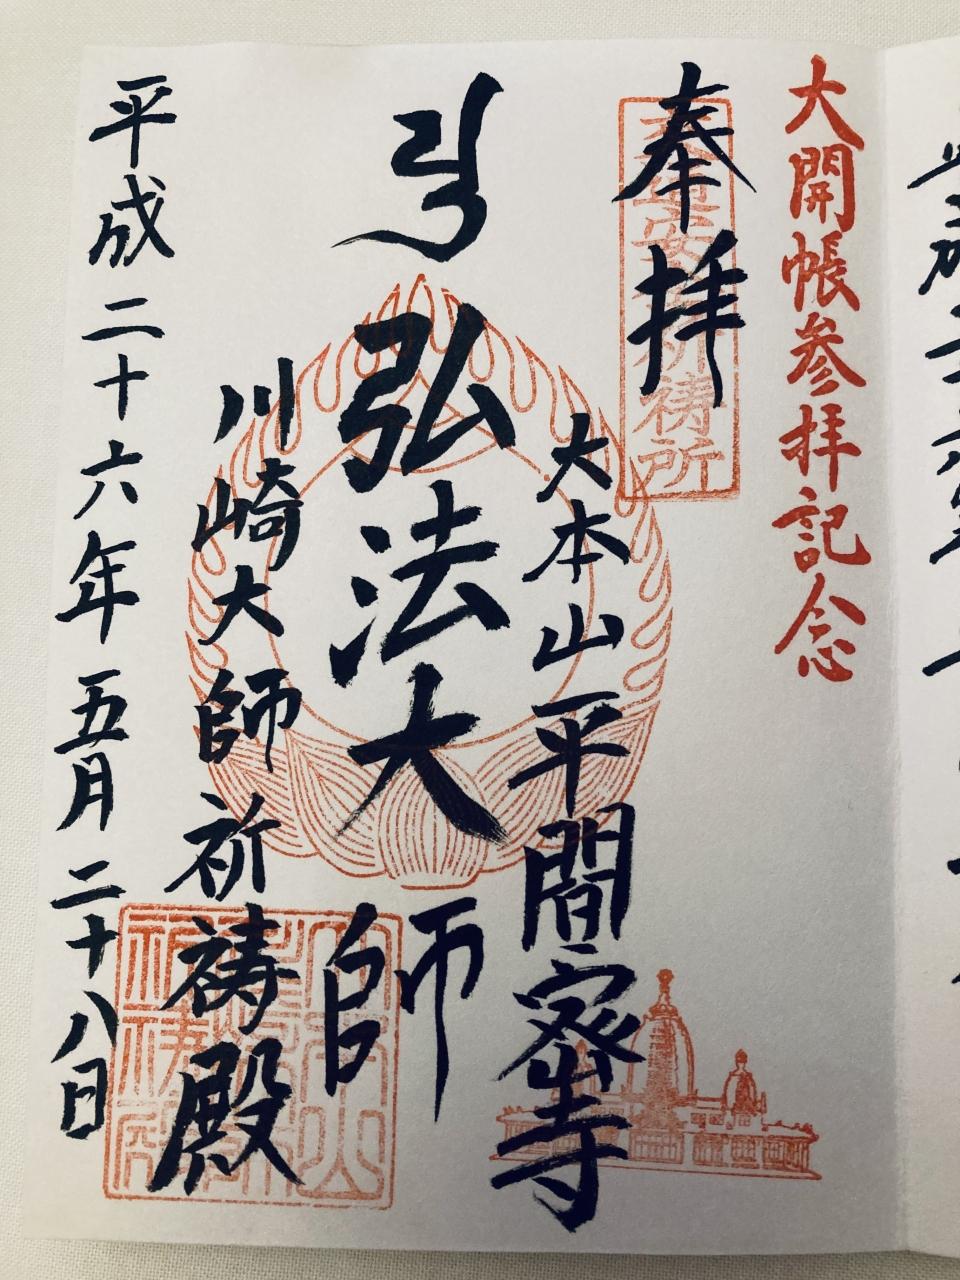 大開帳参拝記念
奉拝
大本山平間密寺
弘法大師
川崎大師祈祷殿
平成二十六年五月二十八日